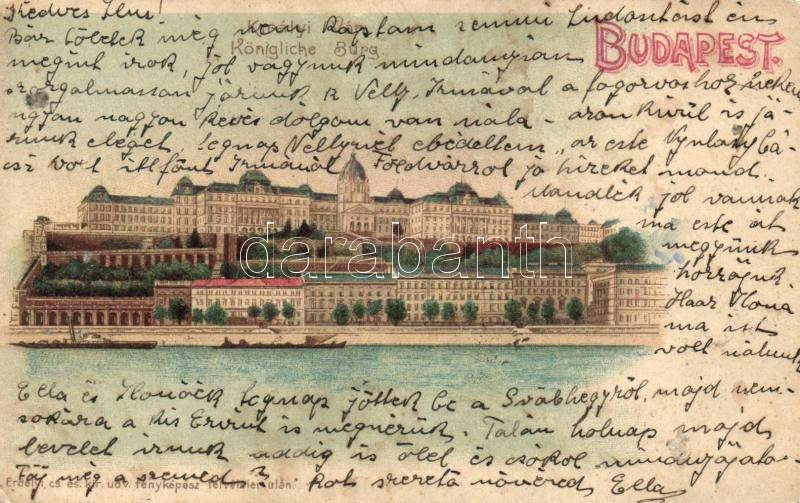 Kedves Ilus!
Királyi Vár.
Königliche Burg.
BUDAPEST.
Bár tőletek még nem kaptam semmi tudósítást én
megint irok, jól vagyunk mindannyian
szorgalmassan járunk Irmával a fogorvoshoz
ugyan nagyon kevés dolgom van nála - azonkivül is já-
runk eleget, tegnap ebédeltem az este
volt itt Irmánál Földvárról jó hireket mond.
Mandlék jól vannak
ma este át
megyünk
hozzájuk.
Haar Ilona
ma is itt
volt nálunk
darabanth
.com
Ella és Ilonáék tegnap jöttek be a Svábhegyről, majd nem-
sokára a kis Ervint is megnérük. Talán holnap majd
levelet irunk addig is ölel és csókol mindnyájato-
Fáj még a szemed? sok szerető nővered Ella
Erdélyi, cs. és kir. udv. fényképész felvételei után.